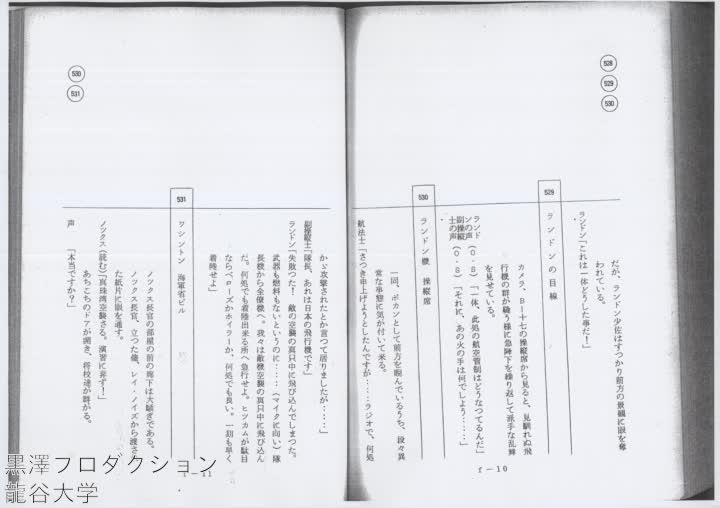 528
529
530
だが、ランドン少佐はすつかり前方の景観に眼を奪
われている。
ランドン「これは一体どうした事だ!」
529
ランドンの目線
カメラ、B―十七の操縦席から見ると、見馴れぬ飛
行機の群が縫う様に急降下を繰り返して派手な乱舞
を見せている。
ランドンの声(O・S)「一体、此処の航空管制はどうなつてるんだ」
副操縦士の声(O・S)「それに、あの火の手は何でしよう……」
530
ランドン機 操縦席
一同、ポカンとして前方を睨んでいるうち、段々異
常な事態に気が付いて来る。
航法士「さつき申上げようとしたんですが……ラジオで、何処
f―10
530
531
かゞ攻撃されたとか言つて居りましたが……」
副操縦士「隊長、あれは日本の飛行機です」
ランドン「失敗つた! 敵の空襲の真只中に飛び込んでしまつた。
武器も燃料もないというのに……(マイクに向い)隊
長機から全僚機へ。我々は敵機空襲の真只中に飛び込ん
だ。何処でも着陸出来る所へ急行せよ。ヒツカムが駄目
ならベローズかホイラーか、何処でも良い。一刻も早く
着陸せよ」
531
ワシントン 海軍省ビル
ノックス長官の部屋の前の廊下は大騒ぎである。
ノックス長官、立つた儘、レイ・ノイズから渡され
た紙片に眼を通す。
ノックス(読む)「真珠湾空襲さる。演習に非ず!」
あちこちのドアが開き、将校達が群がる。
声 「本当ですか?」
f―11
黒澤プロダクション
龍谷大学